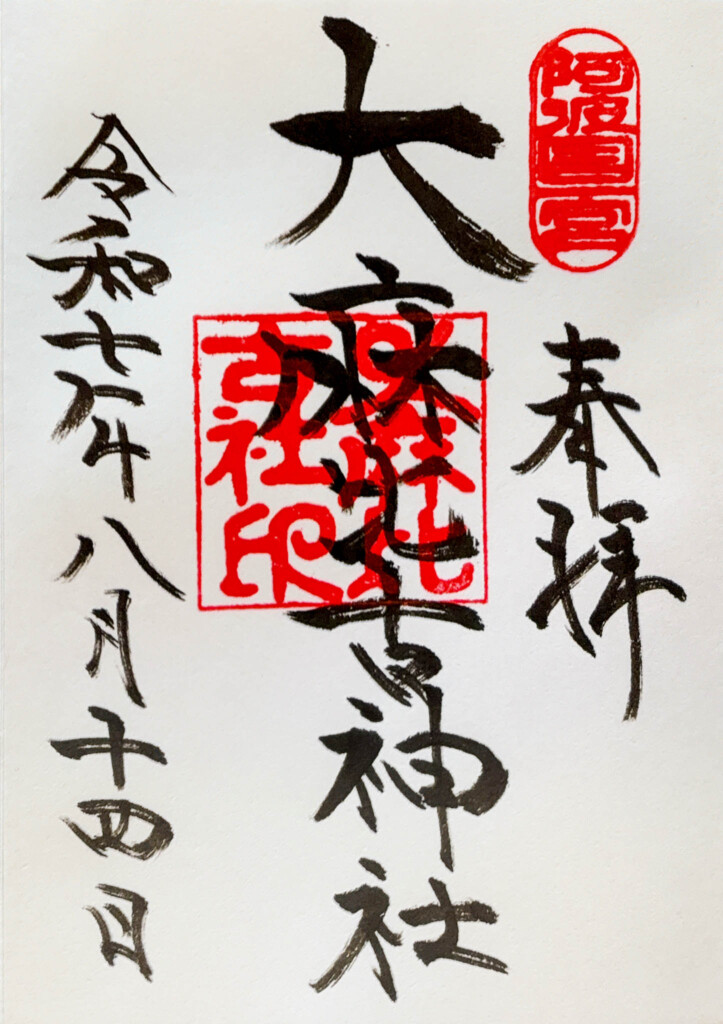 阿波國一宮
奉拝
大麻比古神社
大麻比
古社印
令和七年八月十四日